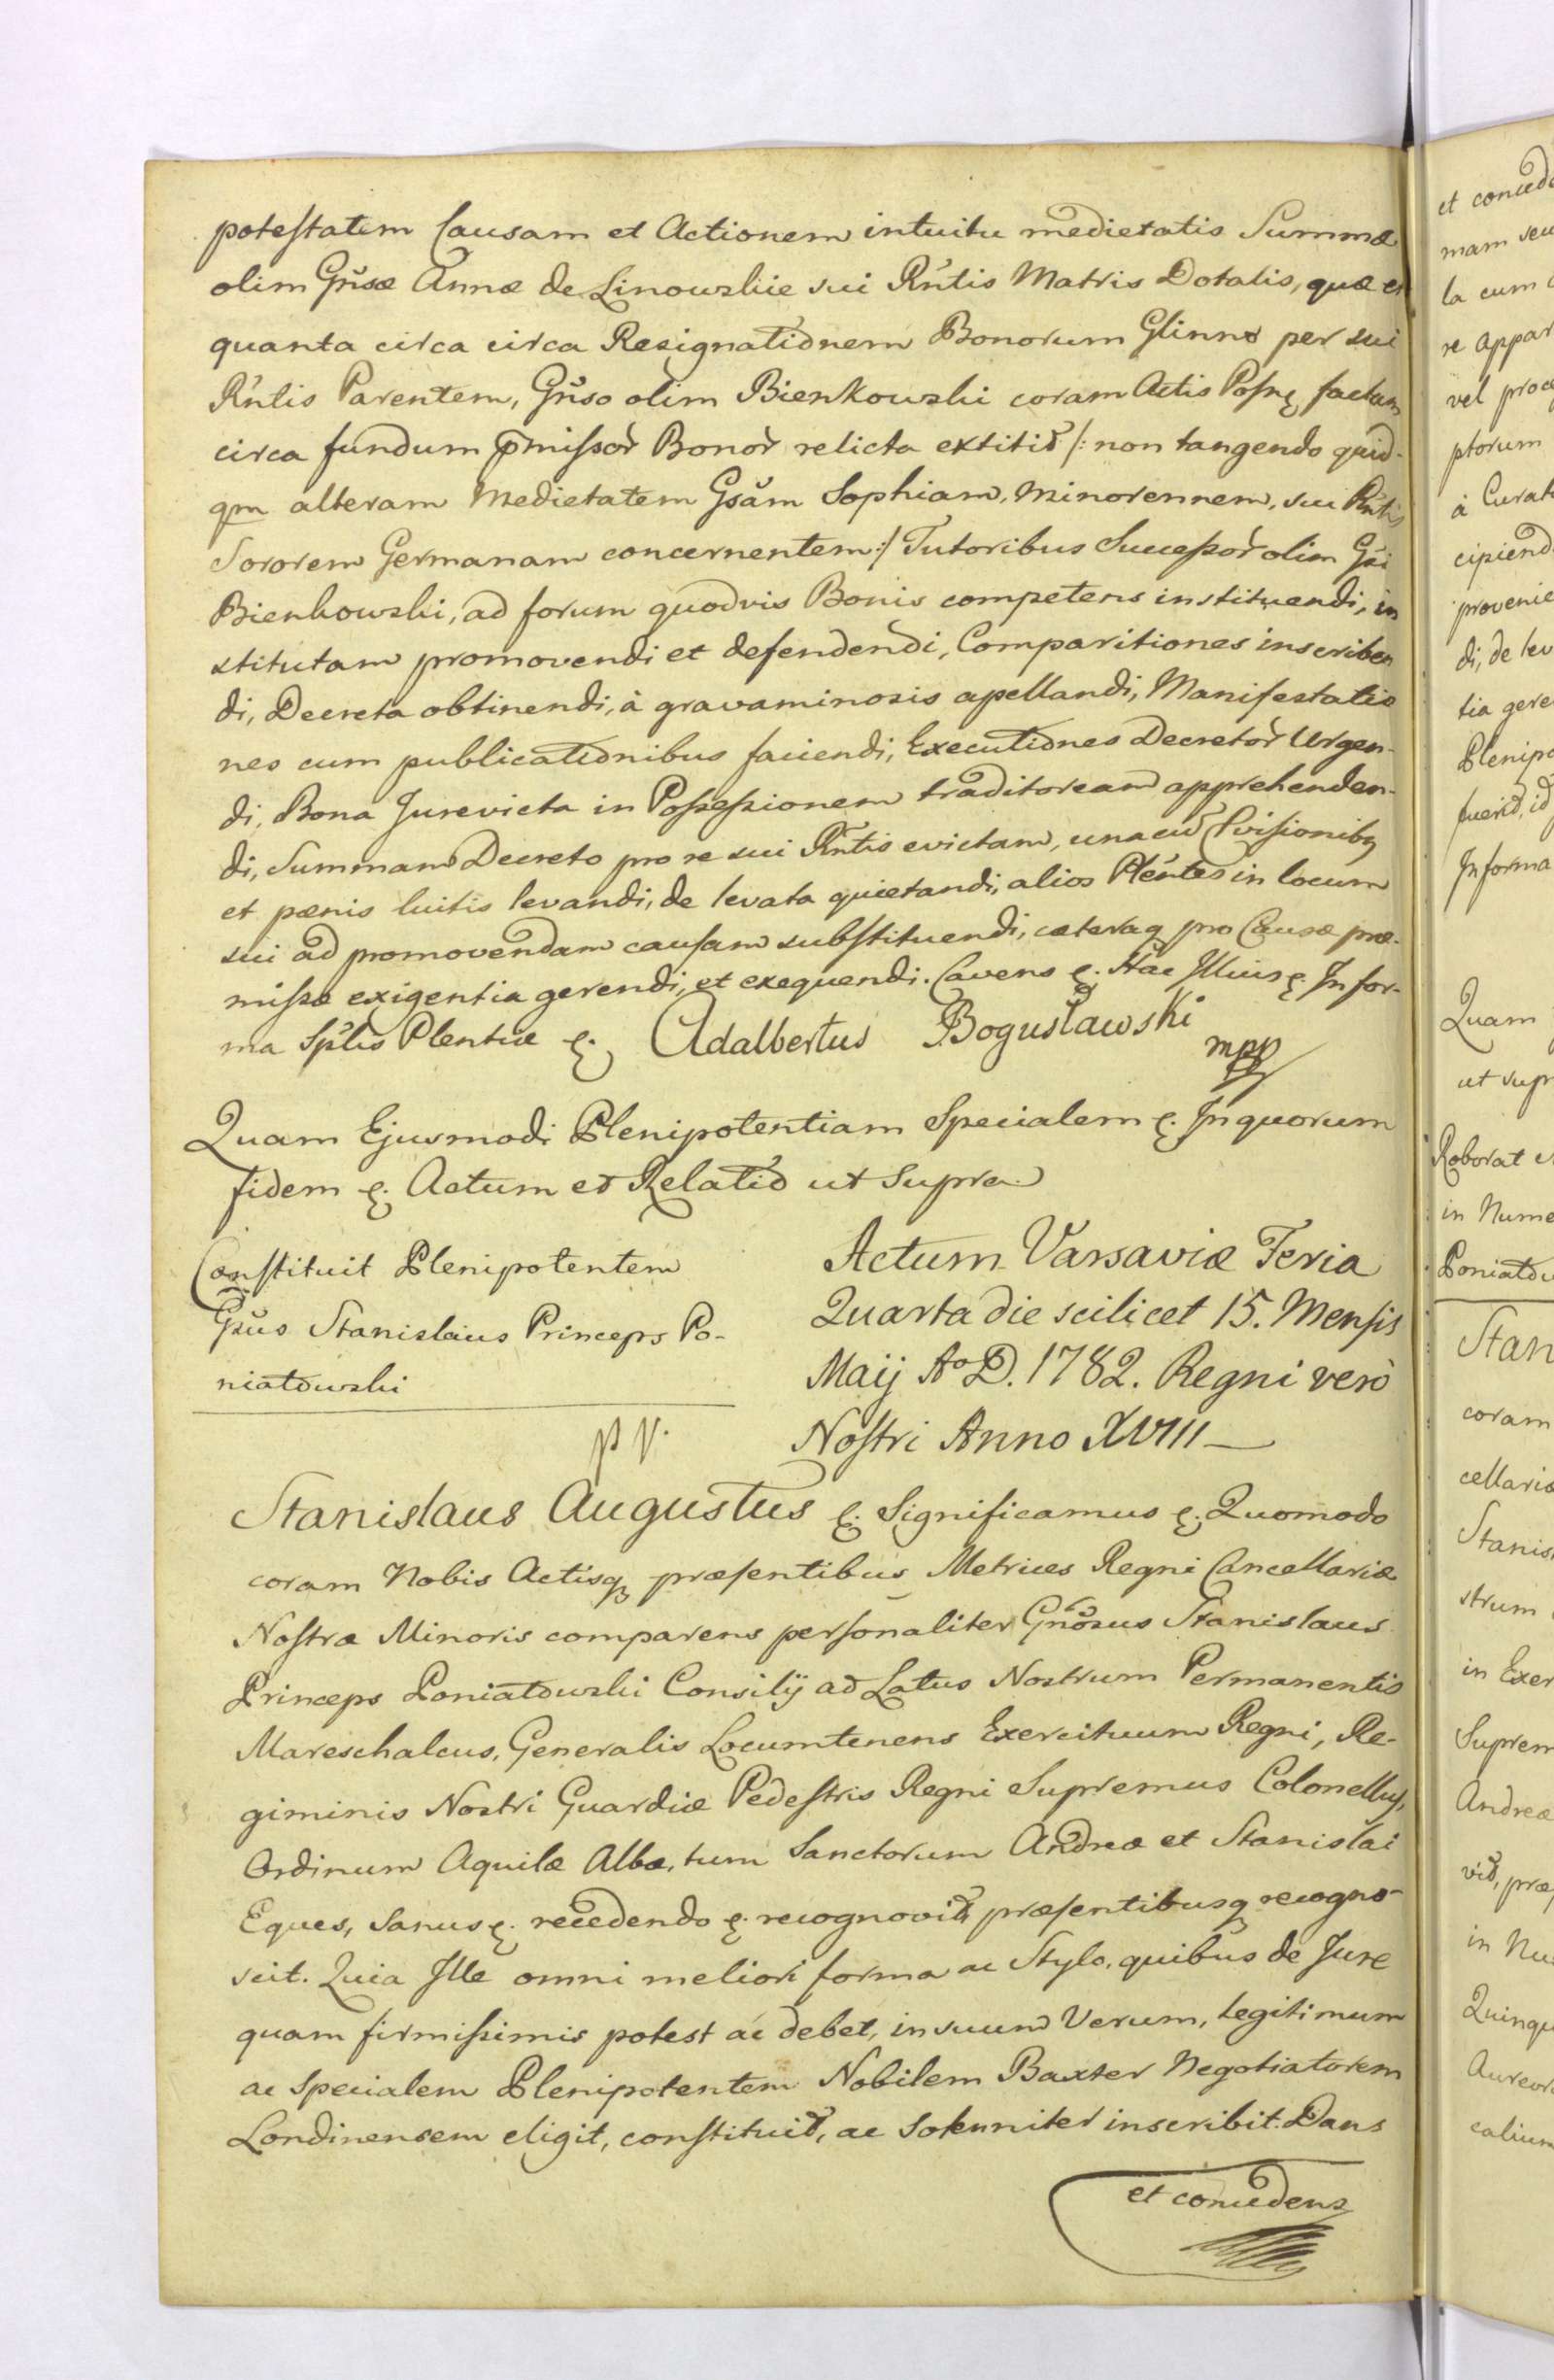 potestatem Causam et Actionem intuitu medietatis Summæ
olim Gñsæ Annæ de Linowskie sui Rńtis Matris Dotalis, quæ et
quanta circa circa Resignationem Bonorum Glinno per sui
Rńtis Parentem, Gñso olim Bienkowski coram Actis factam
circa fundum p̄missor̀ Bonor̀ relicta extitit /: non tangendo quid-
qm alteram Medietatem Gsăm Sophiam, Minorennem, sui Rńtis
Sororem Germanam concernentem :/ Tutoribus Successor̀ olim Gsi
Bienkowski, ad forum quodvis Bonis competens instituendi, in
stitutam promovendi et defendendi, Comparitiones inscriben
di, Decreta obtinendi, à gravaminosis apellandi, Manifestatio
nes cum publicationibus faciendi, Executiones Decretor̀ Urgen-
di, Bona Jurevicta in Possessionem traditoream apprehenden-
di, Summam Decreto pro re sui Rńtis evictam, unacū Pvisionibq
et pænis luitis levandi, de levata quietandi, alios Pleńtes in locum
sui ad promovendam causam substituendi, cæteraq pro Causæ præ-
missæ exigentia gerendi, et exequendi. Cavens ę. Hac Illius ę. In for-
ma Splis Plentiæ ę. Adalbertus Bogusławski mpp
Quam Ejusmodi Plenipotentiam Specialem ę. In quorum
fidem ę. Actum et Relatio ut supra
Constituit Plenipotentem
Gsus Stanislaus Princeps Po-
niatowski
Actum Varsaviæ Feria
Quarta die scilicet 15. Mensis
Maij Aº D. 1782. Regni verò
Nostri Anno XVIII
p p.
Stanislaus Augustus ę. Significamus ę. Quomodo
coram Nobis Actisq præsentibus Metrices Regni Cancellariæ
Nostræ Minoris comparens personaliter Gnosus Stanislaus
Princeps Poniatowski Consilij ad Latus Nostrum Permanentis
Mareschalcus, Generalis Locumtenens Exercituum Regni, Re-
giminis Nostri Guardiæ Pedestris Regni Supremus Colonellus,
Ordinum Aquilæ Albæ, tum Sanctorum Andreæ et Stanislai
Eques, Sanus ę. recedendo ę. recognovit præsentibusq recogno-
scit. Quia Ille omni meliori forma ac Stylo, quibus de Jure
quam firmissimis potest ac debet, in suum Verum, Legitimum
ac specialem Plenipotentem Nobilem Baxter Negotiatorem
Londinensem eligit, constituit, ac Solenniter inscribit. Dans
et concedens
et conceda
mam seu
la cum
re appar
vel proce
ptorum
à Curat
cipiend
provenie
di, de lev
tia gere
Plenipo
fuerit, id
Informa
Quam
ut supr
Roborat
in Nume
Poniatow
Stan
coram
cellariæ
Stanis
strum
in Exer
Suprem
Andreæ
vit, præ
in Nu
Quinqu
Aureor
calium